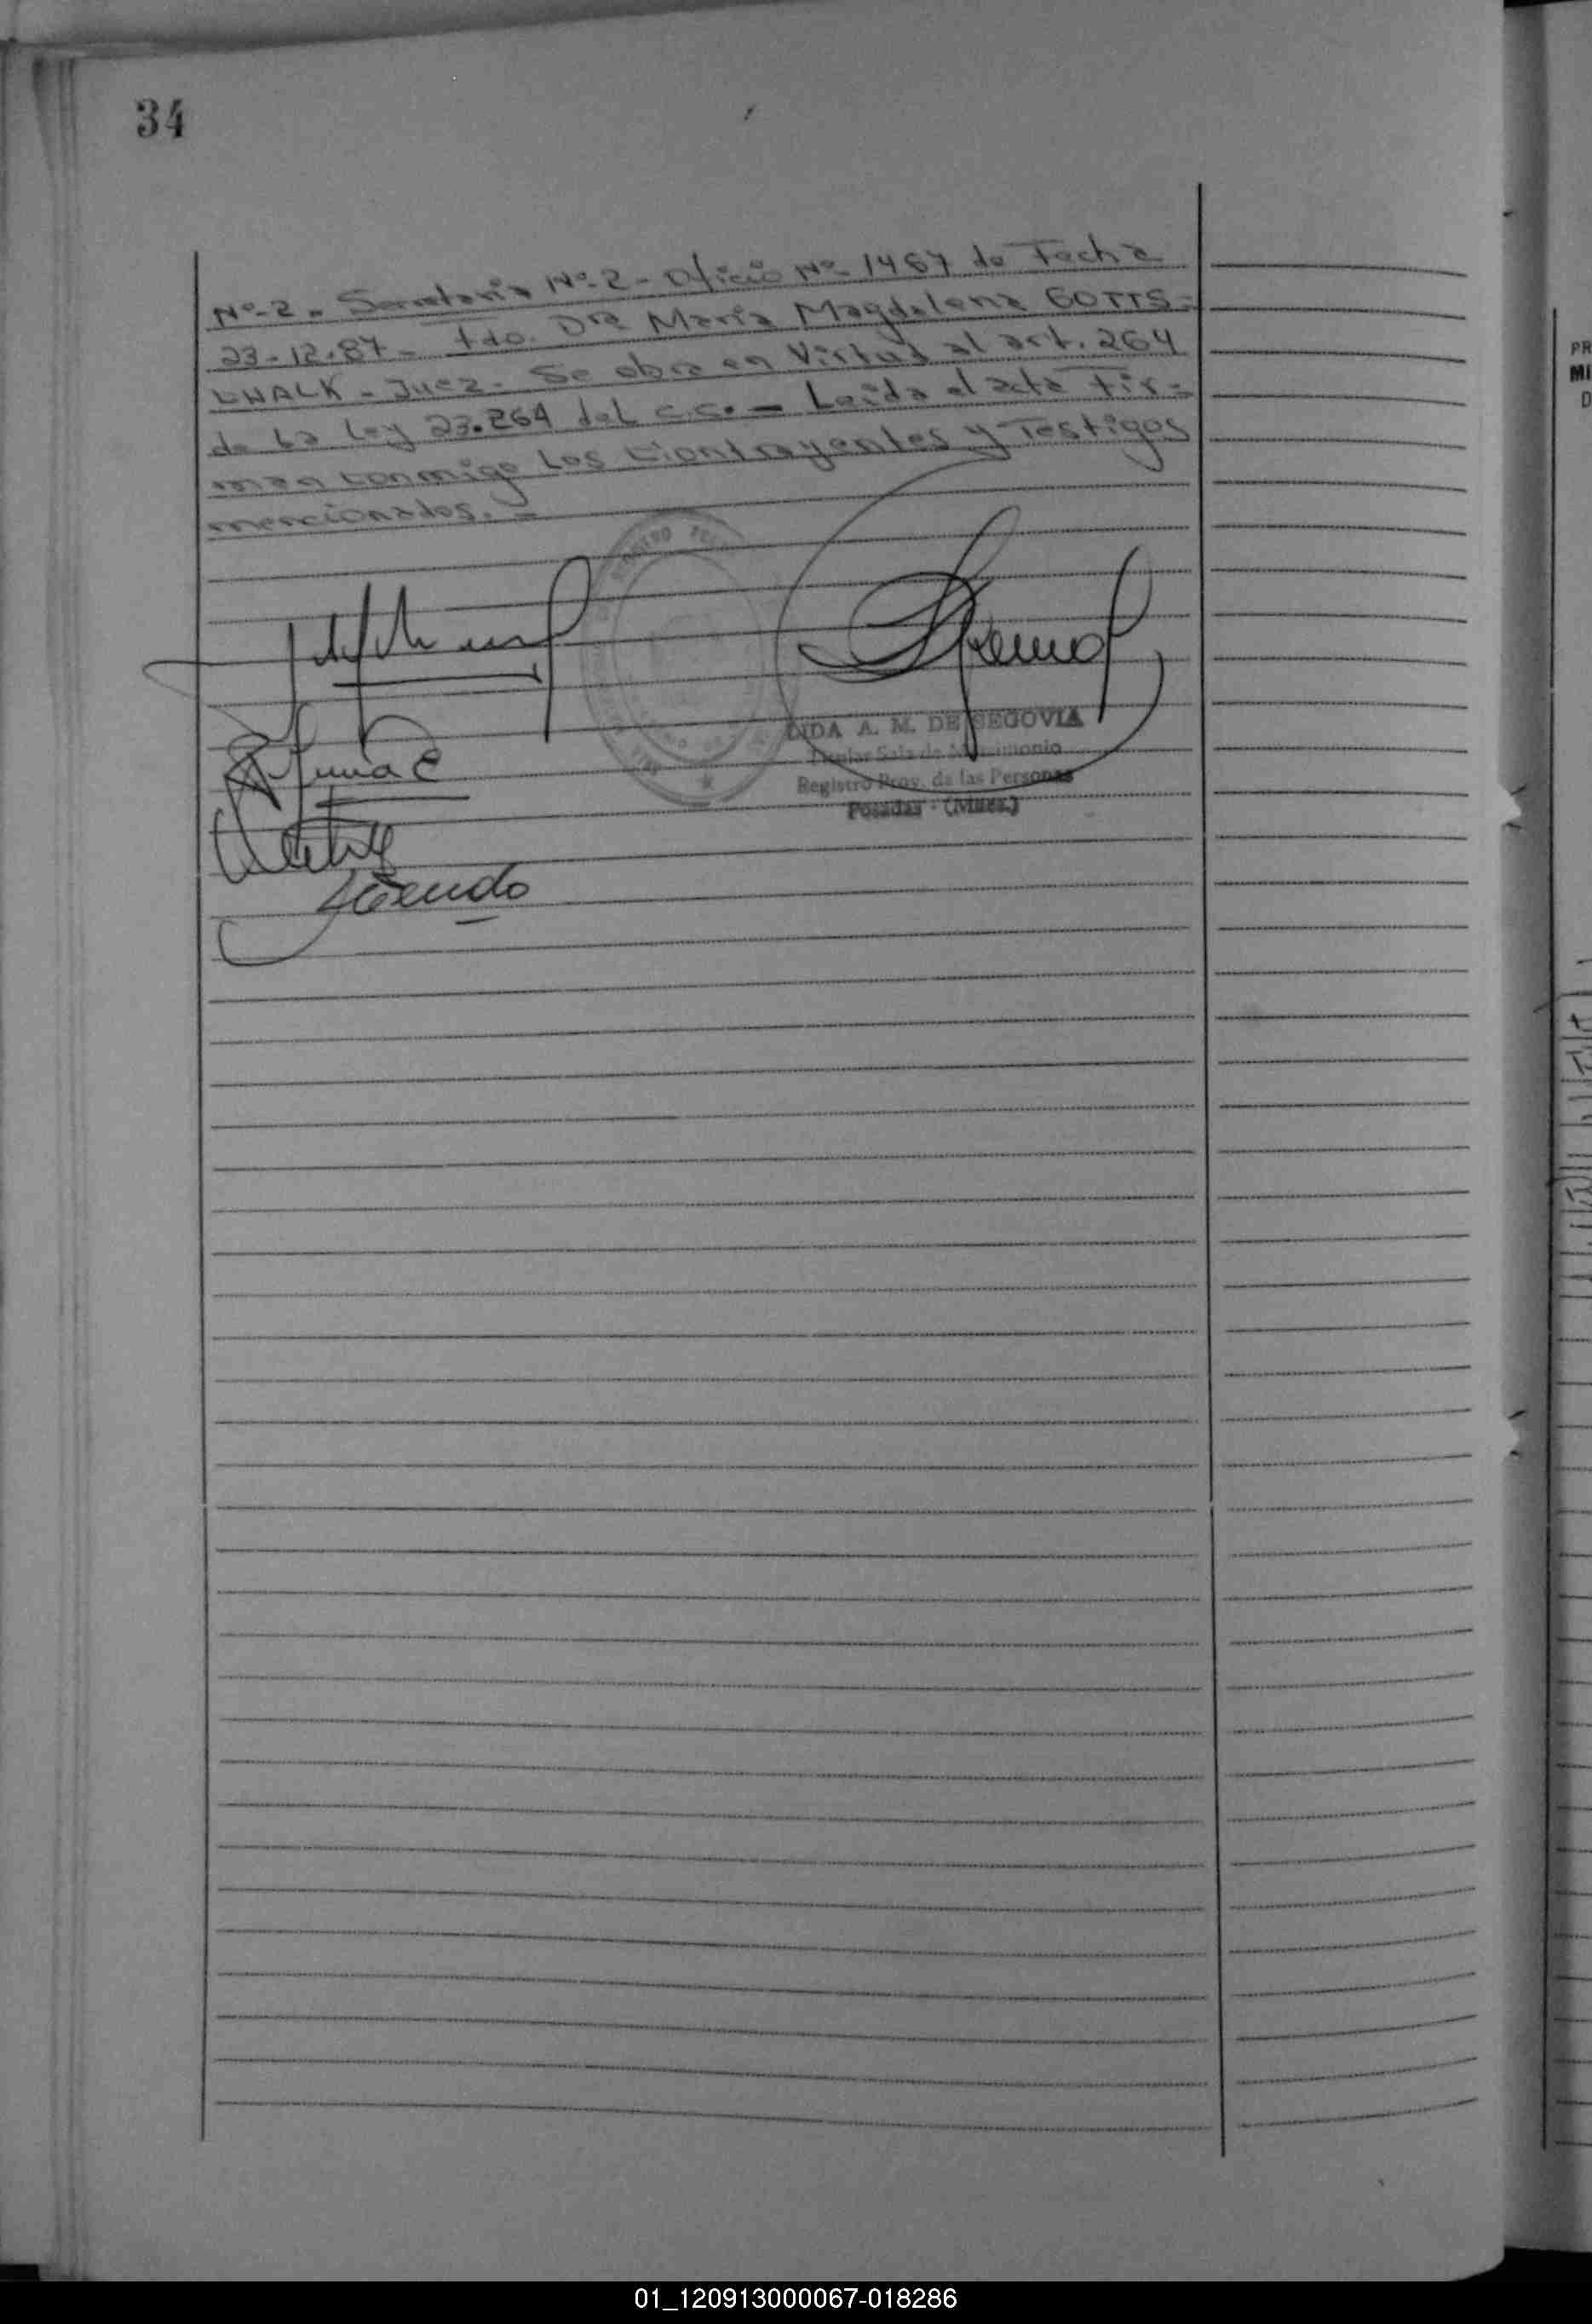 34
Nº-2. Secretaria Nº-2 - Oficio Nº 1467 de Fecha
23-12-87 - Fdo. Dra María Magdalena GOTTS=
CHALK - Juez. Se obra en virtud al art. 264
de la Ley 23.264 del C.C. - Leida el acta Fir=
man conmigo los Contrayentes y Testigos
mencionados. =
LIDA A. M. DE SEGOVIA
Titular Sala de Matrimonio
Registro Prov. de las Personas
Posadas - (Mnes.)
PR
MI
D
01_120913000067-018286